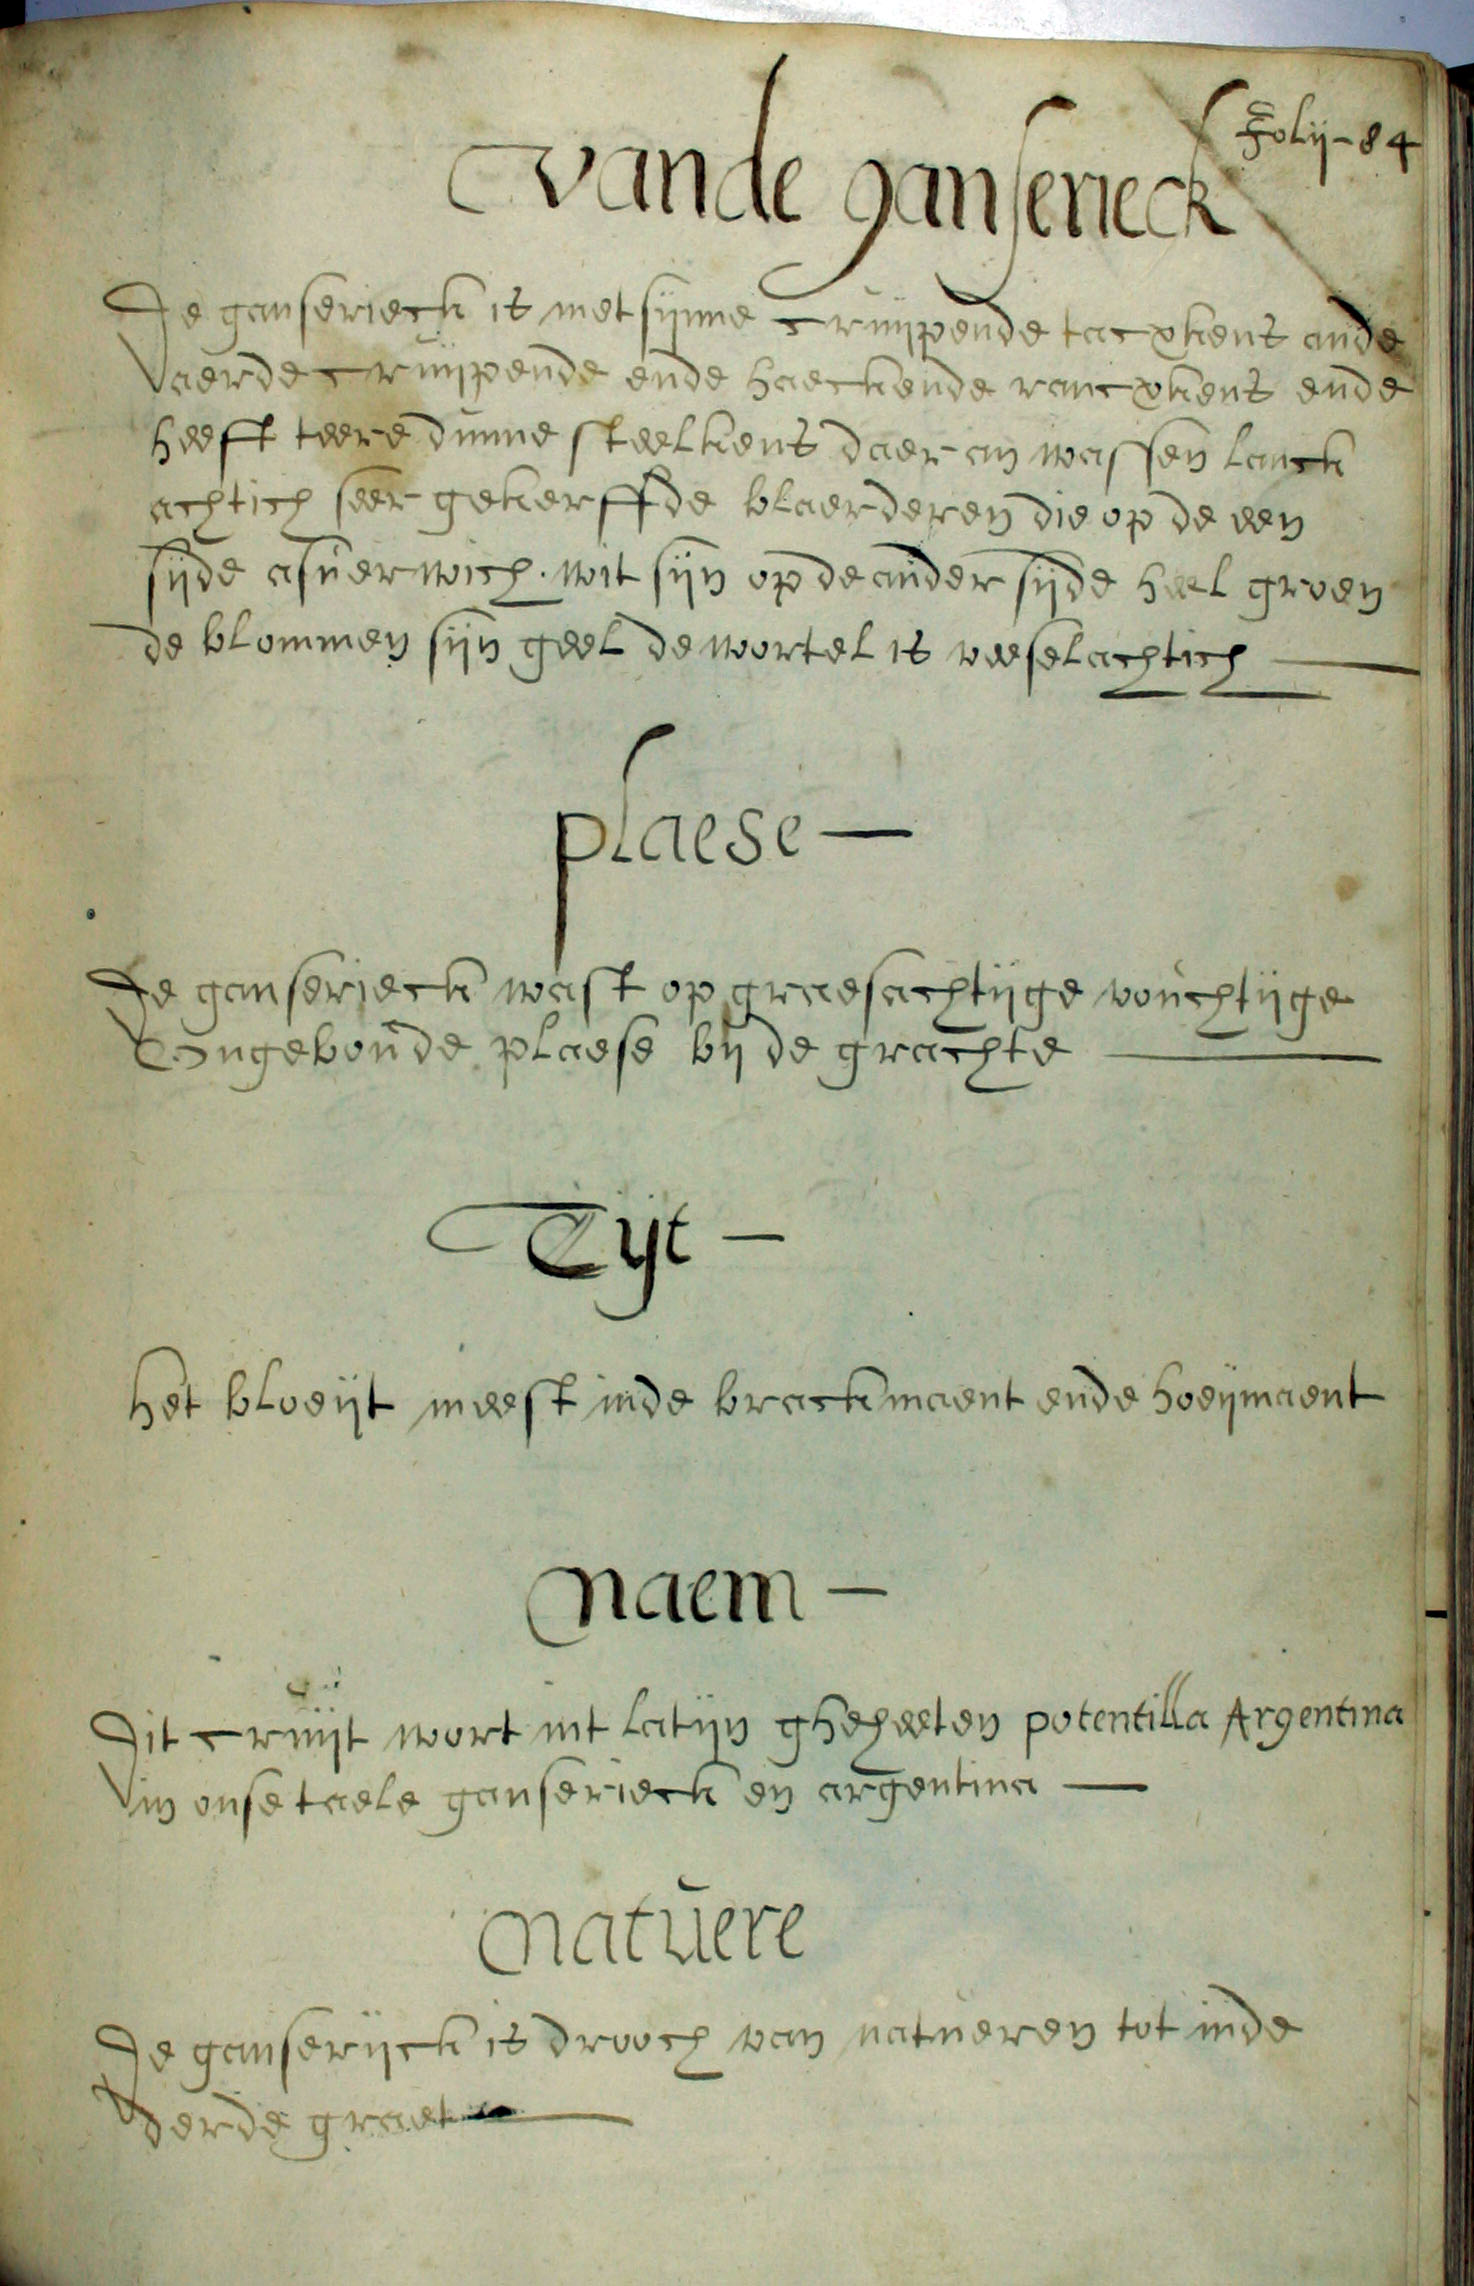 Folij - 84
vande ganserieck
De ganserieck is met sijnne cruijpende tacxkens ande
aerde cruijpende ende haeckende rancxkens ende
heeft teere dunne steelkens daer an wassen lanck
achtich seer gekerffde blaerderen die op de een
sijde asuerwich. wit sijn op de ander sijde heel groen
de blommen sijn geel de wortel is veeselachtich
plaese —
De ganserieck wast op graesachtijge vouchtijge
Ongeboude plaese bij de grachte
Tijt —
het bloeijt meest inde brackmaent ende hoeijmaent
Naem —
Dit cruijt wort int latijn gheheeten potentilla Argentina
in onse taele ganserieck en argentina —
Natuere
De ganserijck is drooch van natueren tot inde
derde graet